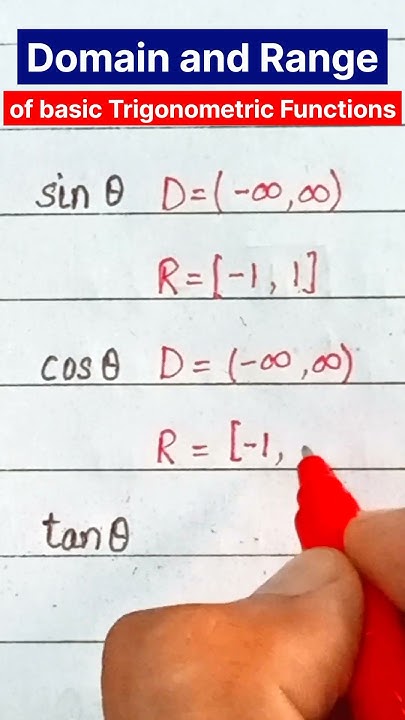 Domain and Range
of basic Trigonometric Functions
sin θ D = (-∞, ∞)
R = [-1, 1]
cos θ D = (-∞, ∞)
R = [-1,
tan θ